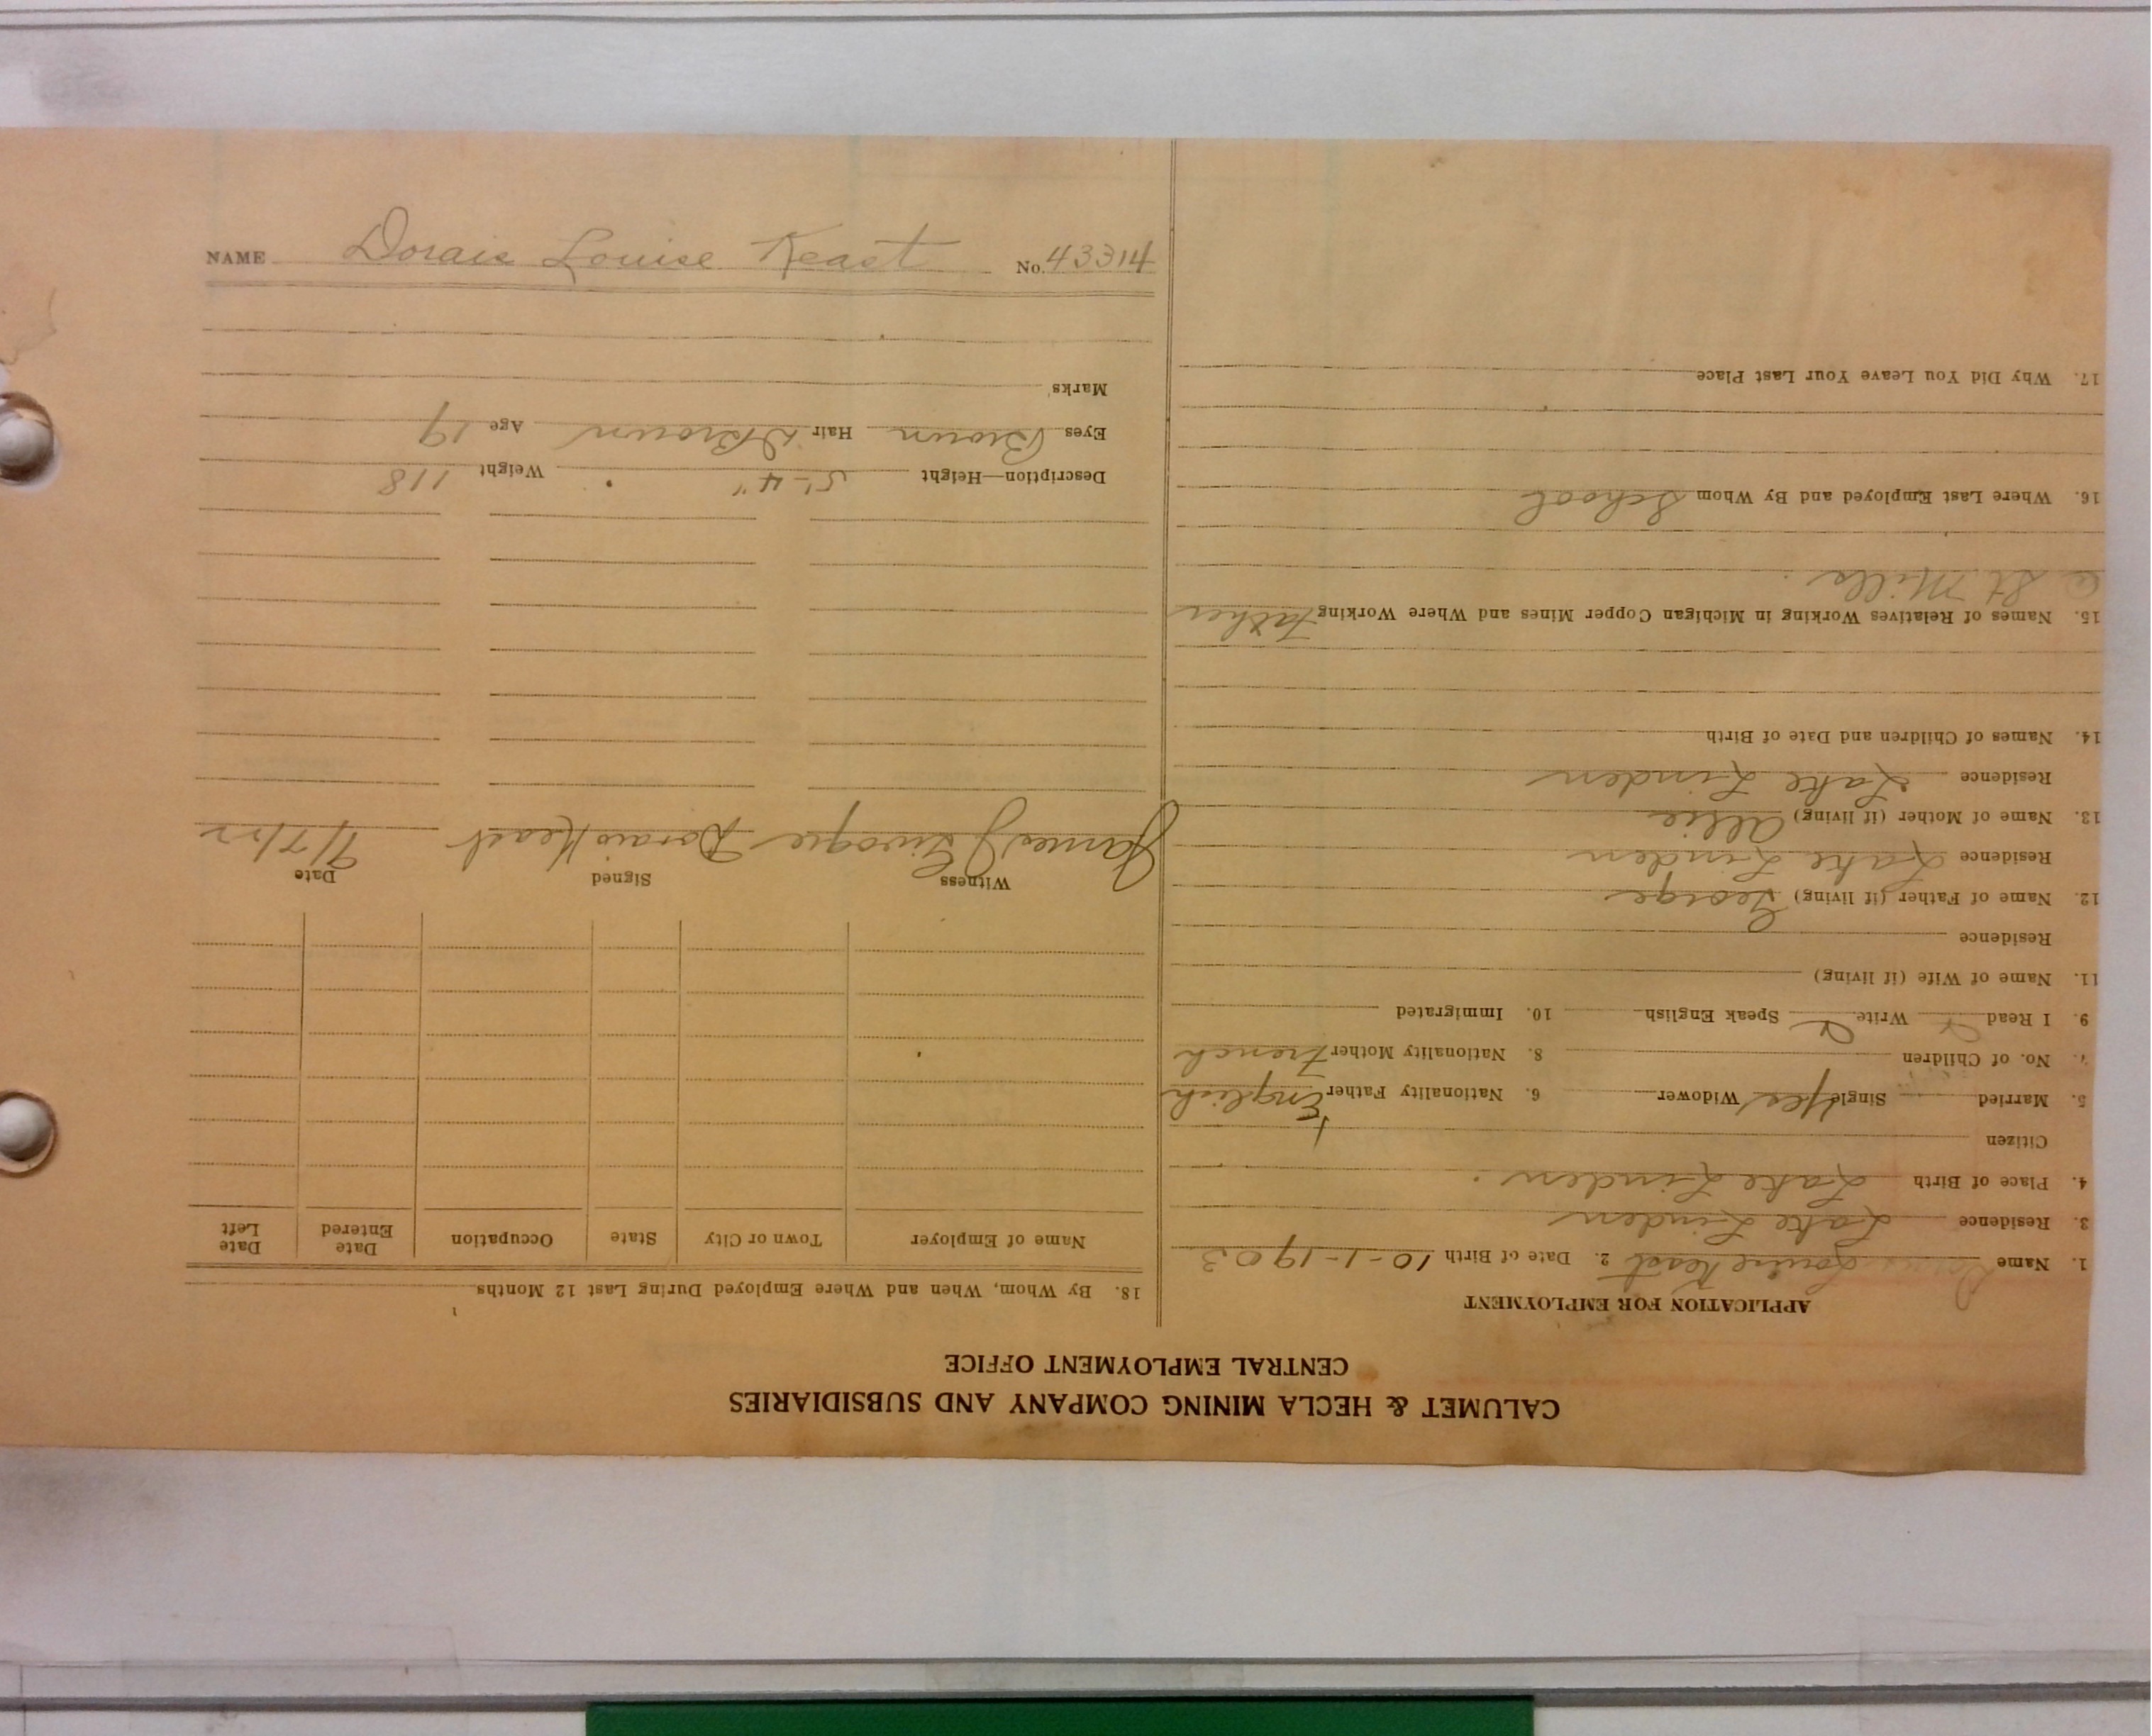 CALUMET & HECLA MINING COMPANY AND SUBSIDIARIES
CENTRAL EMPLOYMENT OFFICE
APPLICATION FOR EMPLOYMENT
1. Name Dorais Louise Keast 2. Date of Birth 10-1-1903
3. Residence Lake Linden
4. Place of Birth Lake Linden.
Citizen
5. Married Single Yes Widower 6. Nationality Father English
7. No. of Children 8. Nationality Mother French
9. I Read Write Speak English 10. Immigrated
11. Name of Wife (if living)
Residence
12. Name of Father (if living) George
Residence Lake Linden
13. Name of Mother (if living) Allie
Residence Lake Linden
14. Names of Children and Date of Birth
15. Names of Relatives Working in Michigan Copper Mines and Where Working Father
@ St Mills.
16. Where Last Employed and By Whom School
17. Why Did You Leave Your Last Place
18. By Whom, When and Where Employed During Last 12 Months
Name of Employer Town or City State Occupation Date Entered Date Left
Witness Signed Date
James J Dorais Keast 9/7/22
Description—Height 5'-4" Weight 118
Eyes Brown Hair D Brown Age 19
Marks
NAME Dorais Louise Keast No. 43314